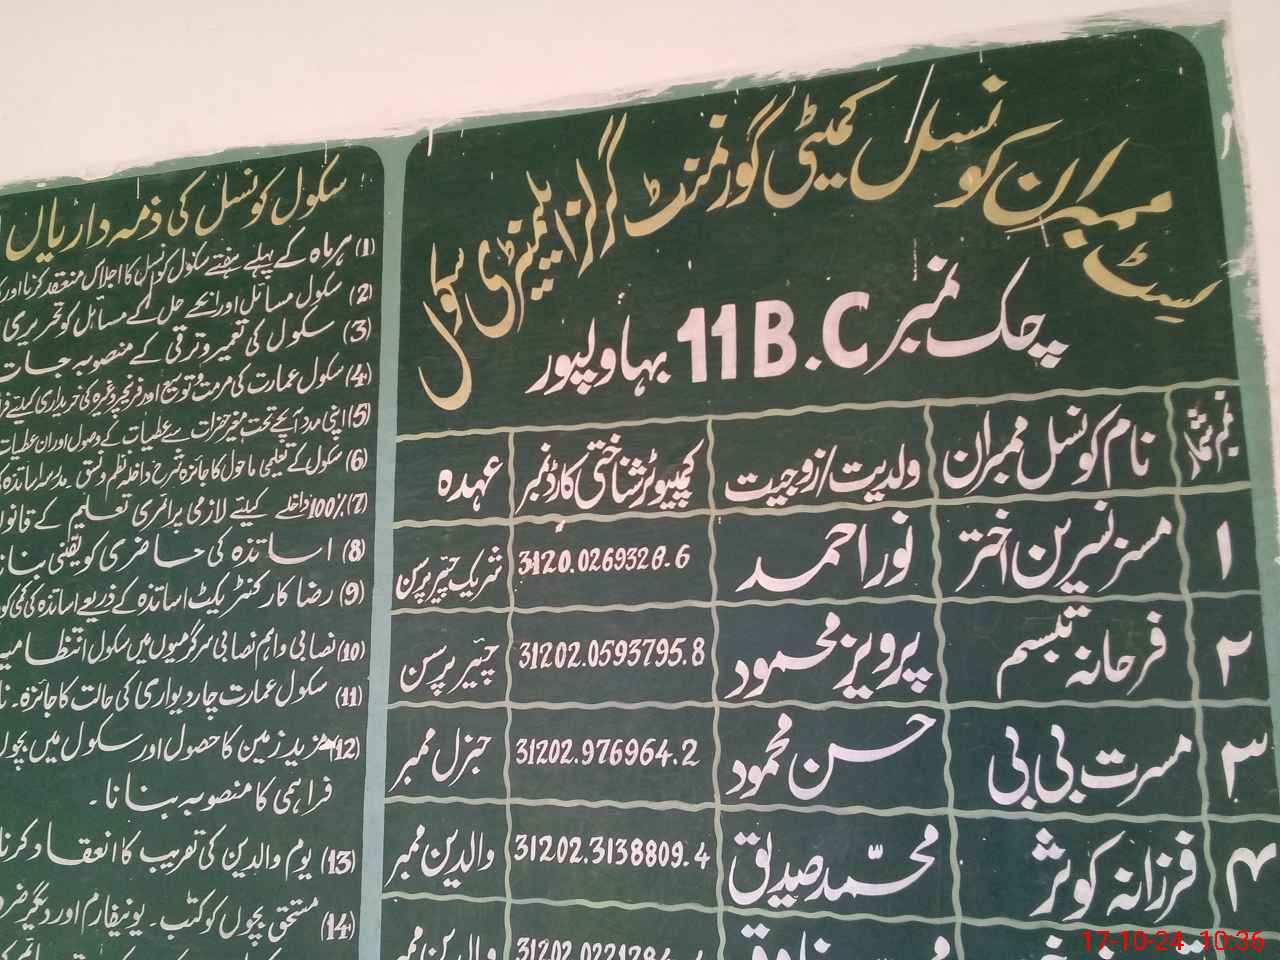 لسٹ ممبران کونسل کمیٹی گورنمنٹ گرلز ایلیمنٹری سکول
چک نمبر 11B.C بہاولپور
نمبر شمار نام کونسل ممبران ولدیت/زوجیت کمپیوٹر شناختی کارڈ نمبر عہدہ
۱ مسز نسرین اختر نور احمد 3120.0269328.6 شریک چیئر پرسن
۲ فرحانہ تبسم پرویز محمود 31202.0593795.8 چیئر پرسن
۳ مسرت بی بی حسن محمود 31202.976964.2 جنرل ممبر
۴ فرزانہ کوثر محمد صدیق 31202.3138809.4 والدین ممبر
سکول کونسل کی ذمہ داریاں
(1) ہر ماہ کے پہلے ہفتے سکول کونسل کا اجلاس منعقد کرنا اور
(2) سکول مسائل اور انکے حل کے مسائل کو تحریری
(3) سکول کی تعمیر و ترقی کے منصوبہ جات
(4) سکول عمارت کی مرمت و توسیع اور فرنیچر وغیرہ کی خریداری کیلئے
(5) اپنی مدد آپ کے تحت مخیر حضرات سے عطیات کے وصول اور ان عطیات
(6) سکول کے تعلیمی ماحول کا جائزہ شرح داخلہ نظم و نسق مدرسہ اساتذہ
(7) 100% داخلے کیلئے لازمی پرائمری تعلیم کے
(8) اساتذہ کی حاضری کو یقینی بنانا
(9) رضا کار کنٹریکٹ اساتذہ کے ذریعے اساتذہ کی کمی کو
(10) نصابی و اہم نصابی سرگرمیوں میں سکول
(11) سکول عمارت چار دیواری کی حالت کا جائزہ۔
(12) مزید زمین کا حصول اور سکول میں
فراہمی کا منصوبہ بنانا۔
(13) یوم والدین کی تقریب کا انعقاد کرنا
(14) مستحق بچوں کو کتب۔ یونیفارم اور دیگر
17-10-24 10:36